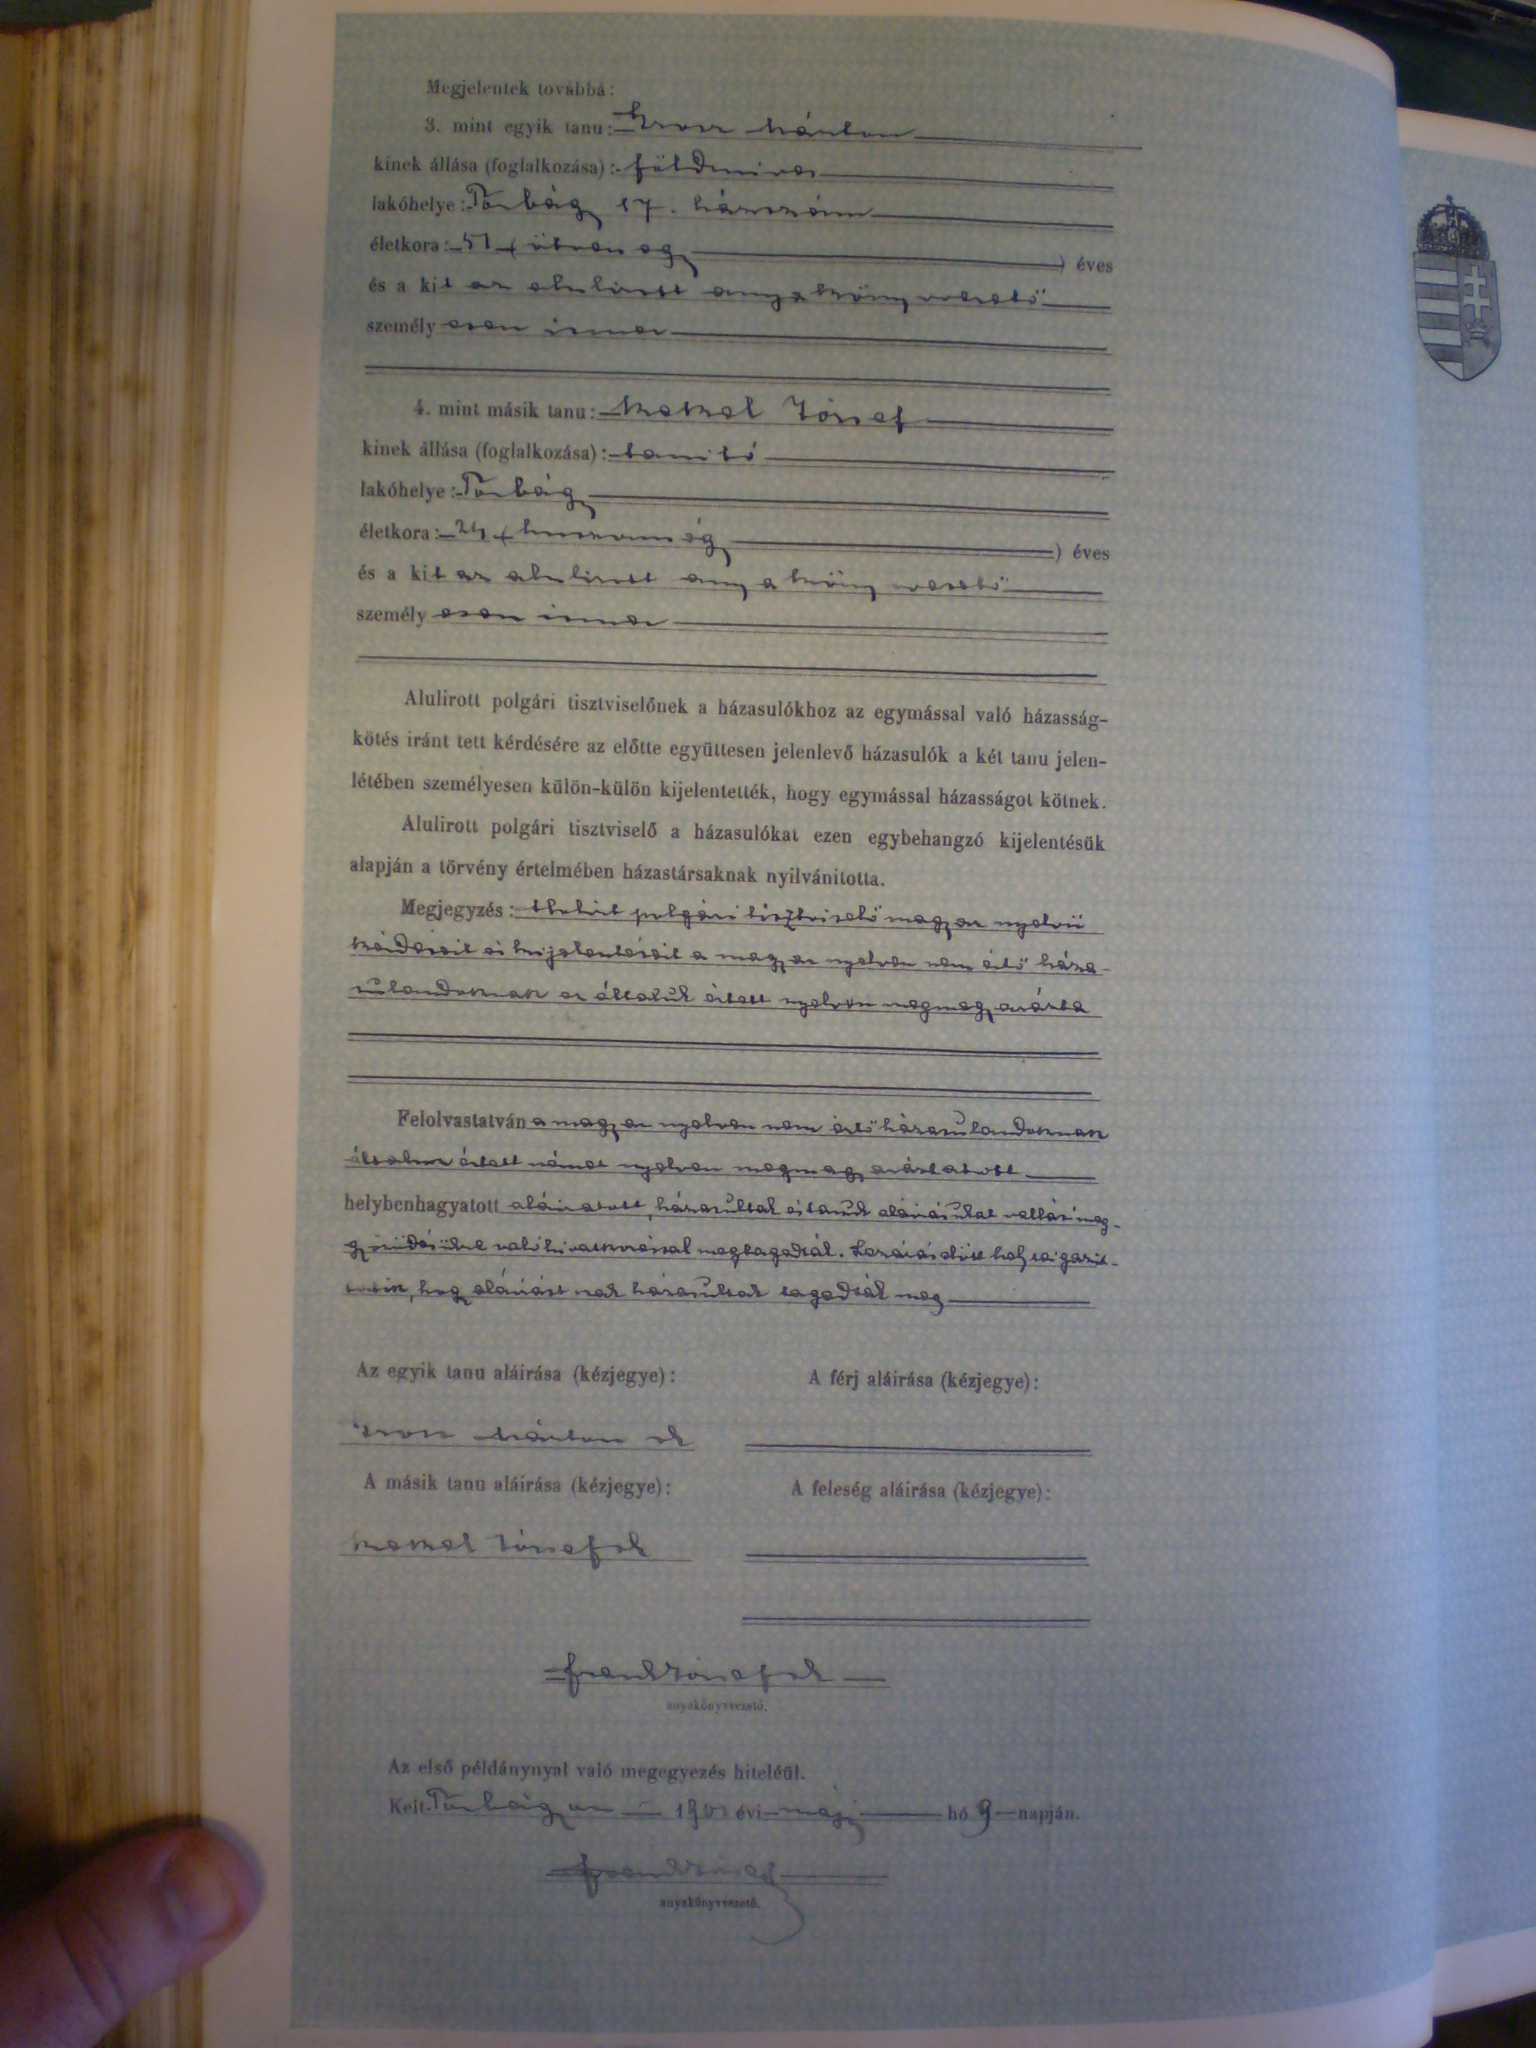 Megjelentek továbbá:
3. mint egyik tanu: Márton
kinek állása (foglalkozása): földmives
lakóhelye: Törbág 17. házszám
életkora: 51 (ötven egy ) éves
és a kit az alulirott anyakönyvvezető
személy esen ismer
4. mint másik tanu: József
kinek állása (foglalkozása): tanitó
lakóhelye: Törbág
életkora: 24 (huszonnégy ) éves
és a kit az alulirott anyakönyvvezető
személy esen ismer
Alulirott polgári tisztviselőnek a házasulókhoz az egymással való házasság-
kötés iránt tett kérdésére az előtte együttesen jelenlevő házasulók a két tanu jelen-
létében személyesen külön-külön kijelentették, hogy egymással házasságot kötnek.
Alulirott polgári tisztviselő a házasulókat ezen egybehangzó kijelentésük
alapján a törvény értelmében házastársaknak nyilvánitotta.
Megjegyzés: Alulirt polgári tisztviselő magyar nyelvü
kérdéseit és kijelentéseit a magyar nyelven nem értő háza-
sulandoknak az általuk értett nyelven megmagyarázta
Felolvastatván a magyar nyelven nem értő házasulandoknak
általuk értett német nyelven megmagyaráztatott
helybenhagyatott aláiratott, házasultak és tanuk aláirásukat vallás meg-
győződésükre való hivatkozással megtagadták. Lezárás előtt helyesbigazit-
tatik, hogy aláirást csak házasultak tagadták meg
Az egyik tanu aláirása (kézjegye): A férj aláirása (kézjegye):
Márton sk
A másik tanu aláirása (kézjegye): A feleség aláirása (kézjegye):
József sk
Frank József sk
anyakönyvvezető.
Az első példánynyal való megegyezés hiteléül.
Kelt Törbágyon 1901 évi máj hó 9 napján.
Frank József
anyakönyvvezető.